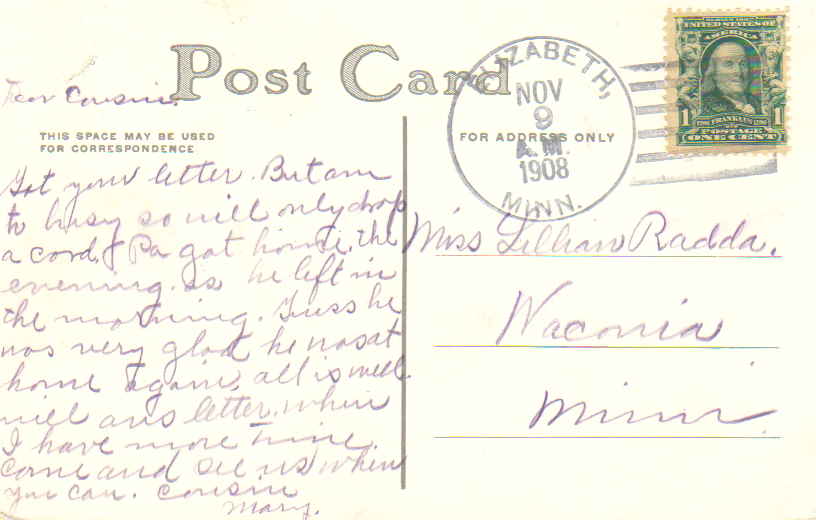 Post Card
Dear Cousin.
THIS SPACE MAY BE USED
FOR CORRESPONDENCE
Got your letter. But am
to busy so will only drop
a card. Pa got home, the
evening. as he left in
the morning. Guess he
was very glad he was at
home again, all is well.
will ans letter, when
I have more time.
Come and see us when
you can. Cousin
Mary.
ELIZABETH,
NOV
9
A.M.
1908
MINN.
UNITED STATES OF
AMERICA
1 1
FRANKLIN
POSTAGE
ONE CENT
FOR ADDRESS ONLY
Miss Lillian Radda.
Waconia
Minn.